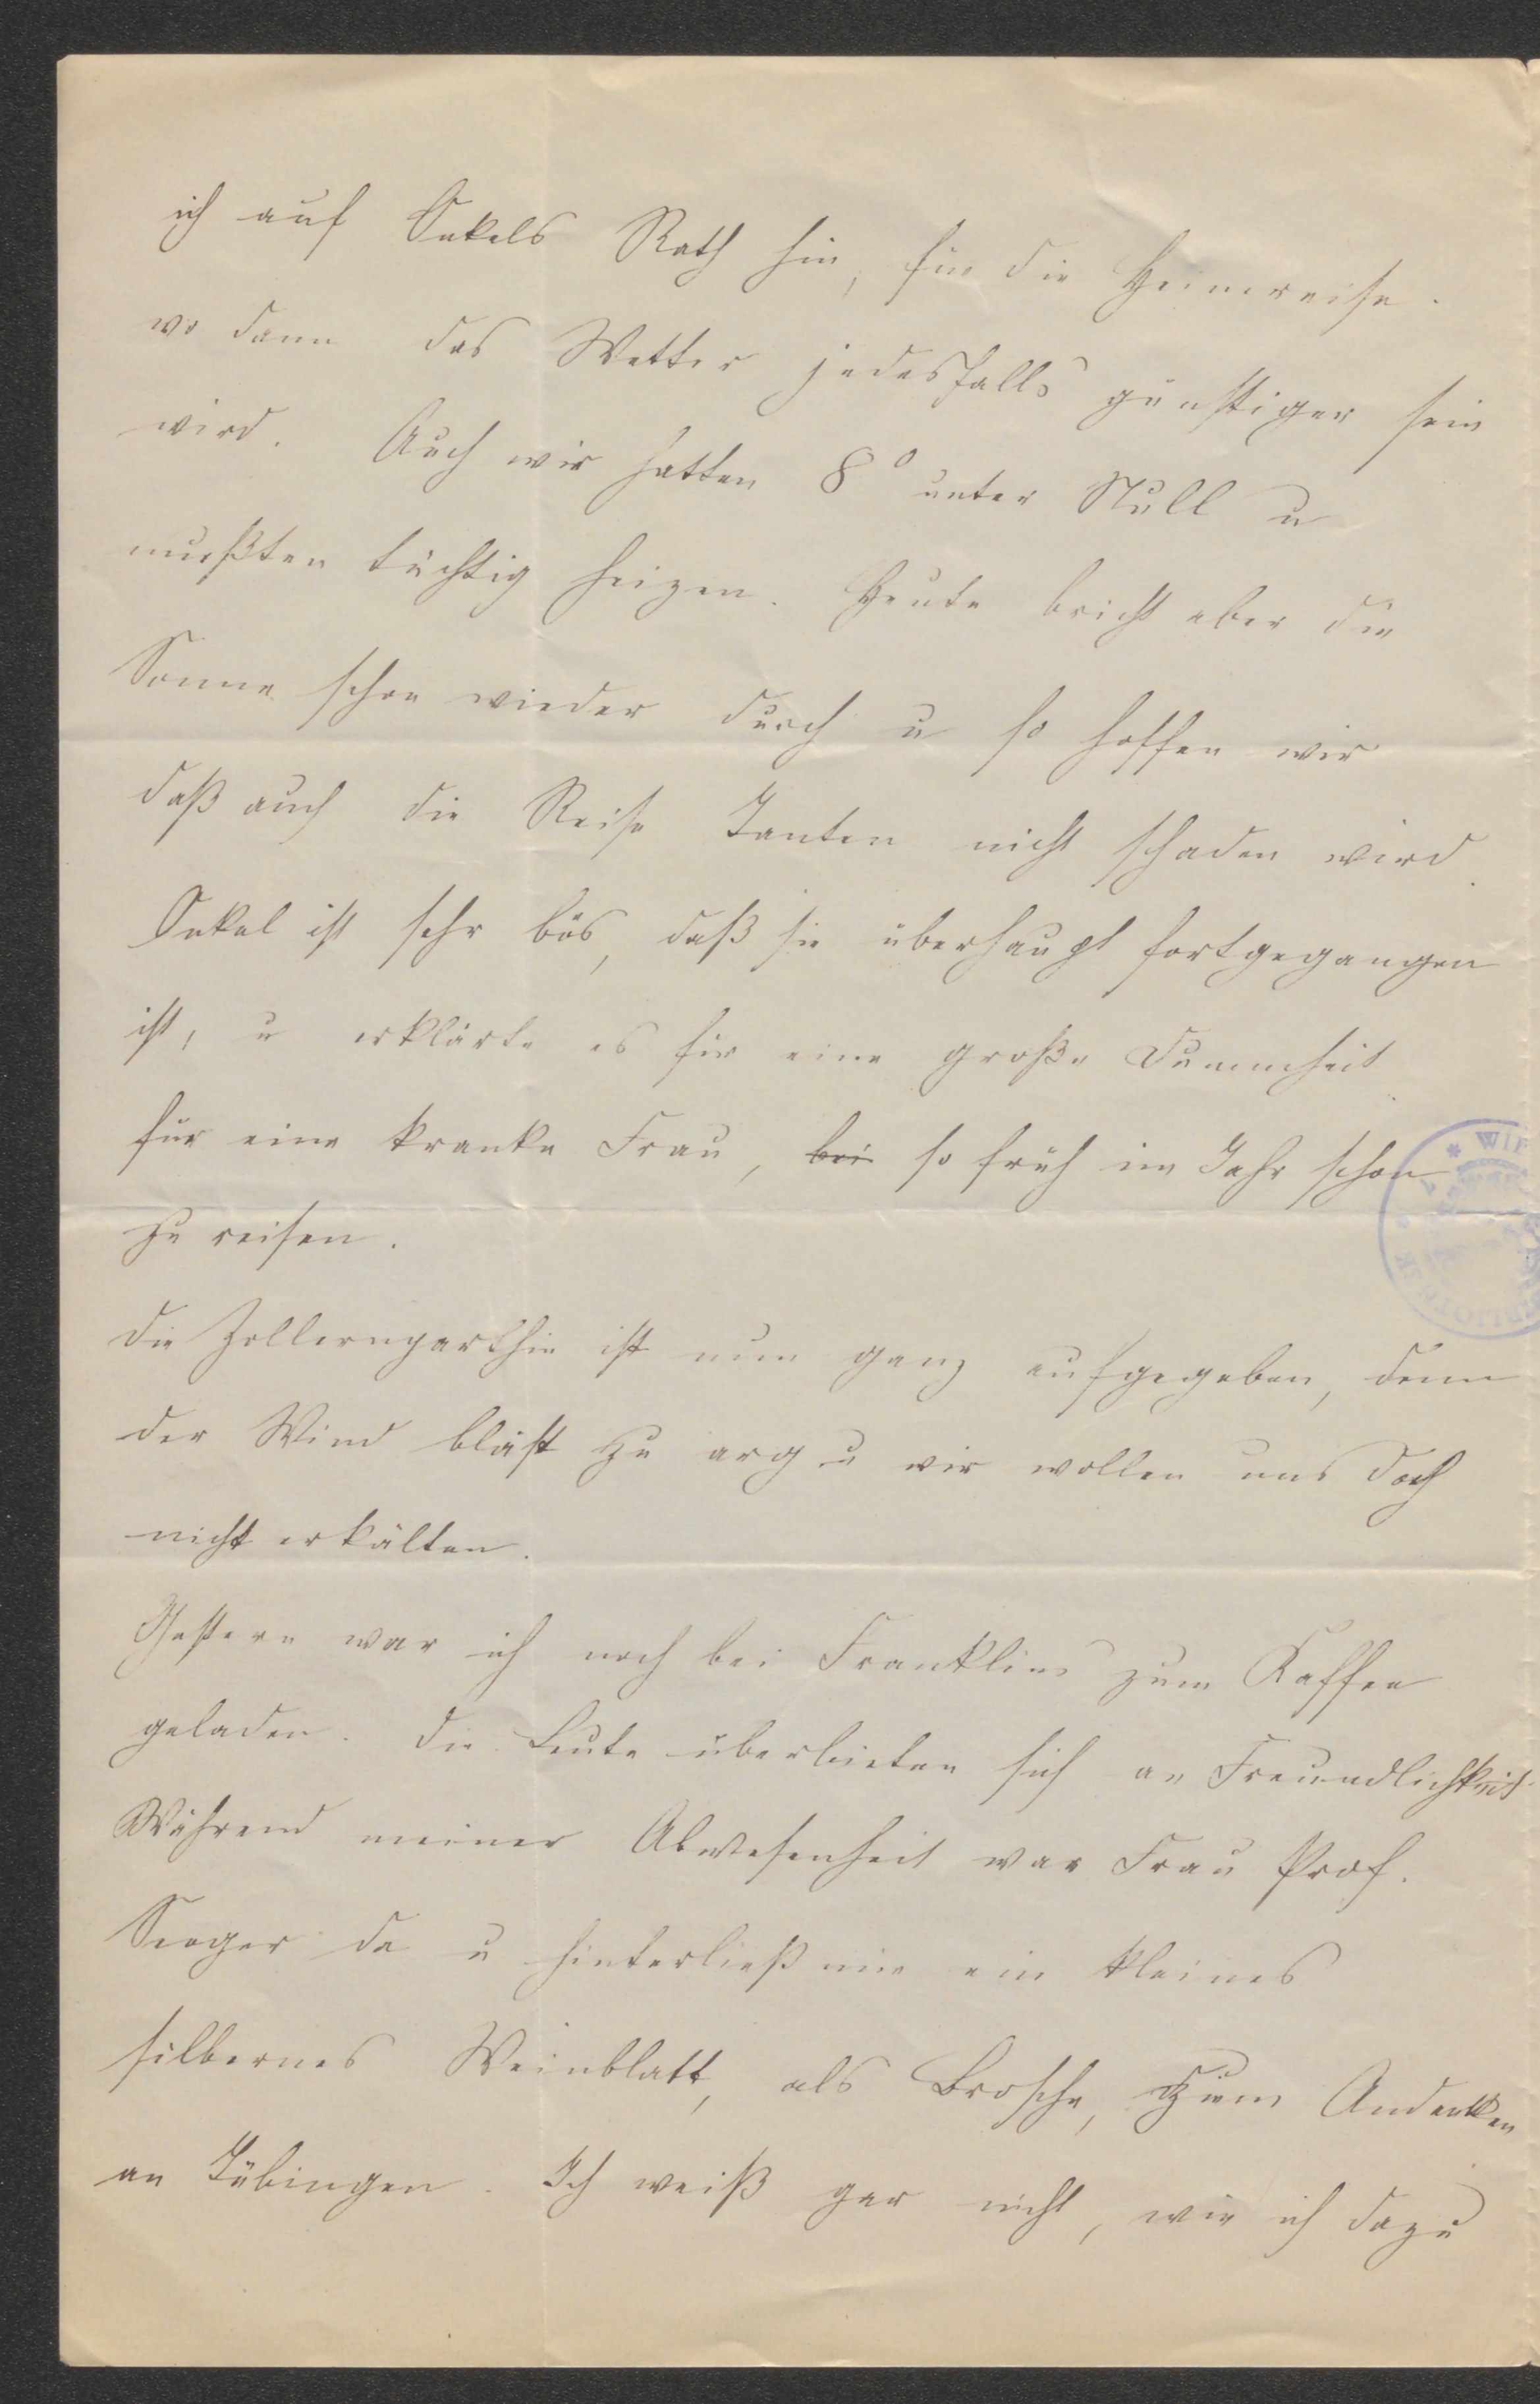 ich auf Onkels Rath hin, für die Heimreise.
wo dann das Wetter jedesfalls günstiger sein
wird. Auch wir hatten 8° unter Null u
mußten tüchtig heizen. Heute bricht aber die
Sonne schon wieder durch u so hoffen wir
daß auch die Reise Tanten nicht schaden wird.
Onkel ist sehr bös, daß sie überhaupt fortgegangen
ist, u erklärte es für eine große Dummheit
für eine kranke Frau, bei so früh im Jahr schon
zu reisen.
Die Zollernparthie ist nun ganz aufgegeben, denn
der Wind bläst zu arg u wir wollen uns doch
nicht erkälten.
Gestern war ich noch bei Franklins zum Kaffee
geladen. Die Leute überbieten sich an Freundlichkeit.
Während meiner Abwesenheit war Frau Prof.
Seeger da u hinterließ mir ein kleines
silbernes Weinblatt, als Brosche, zum Andenken
an Tübingen. Ich weiß gar nicht, wie ich dazu